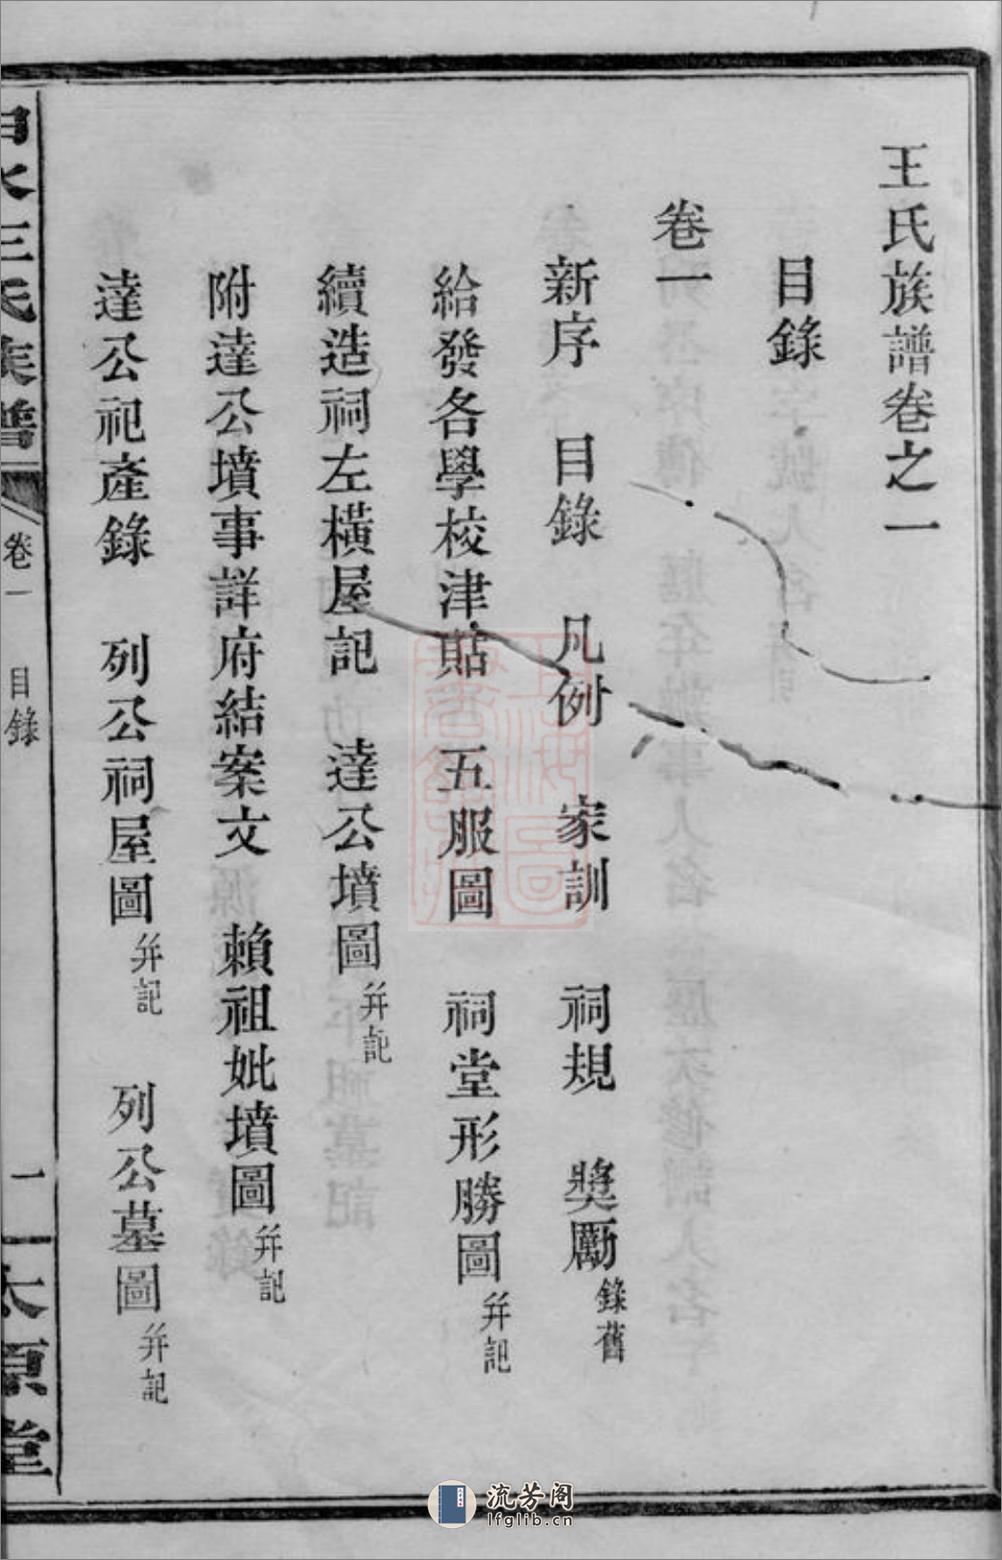 王氏族譜卷之一
目錄
卷一
新序　目錄　凡例　家訓　祠規　獎勵錄舊
給發各學校津貼　五服圖　祠堂形勝圖并記
續造祠左橫屋記　達公墳圖并記
附達公墳事詳府結案文　賴祖妣墳圖并記
達公祀產錄　列公祠屋圖并記　列公墓圖并記
水王氏族譜　卷一　目錄　一　太原堂
流芳阁
lfglib.cn